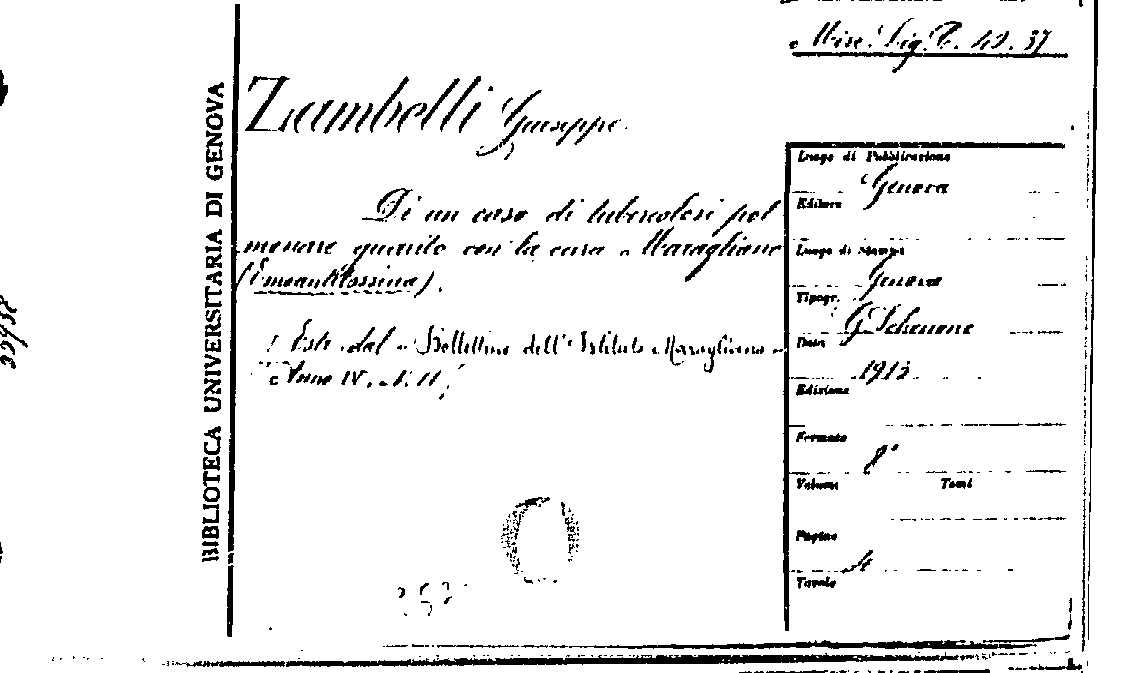 Misc. Lig. C. 40. 37
BIBLIOTECA UNIVERSITARIA DI GENOVA
Zambelli Giuseppe
Di un caso di tubercolosi pol
monare guarito con la cura "Maragliano
(Emoantitossina).
(Estr. dal "Bollettino dell'Istituto Maragliano"
Anno IV. N. 11)
Luogo di Pubblicazione
Genova
Editore
Luogo di Stampa
Genova
Tipogr.
G. Schenone
Data
1913
Edizione
Formato
8°
Volume Tomi
Pagine
Tavole